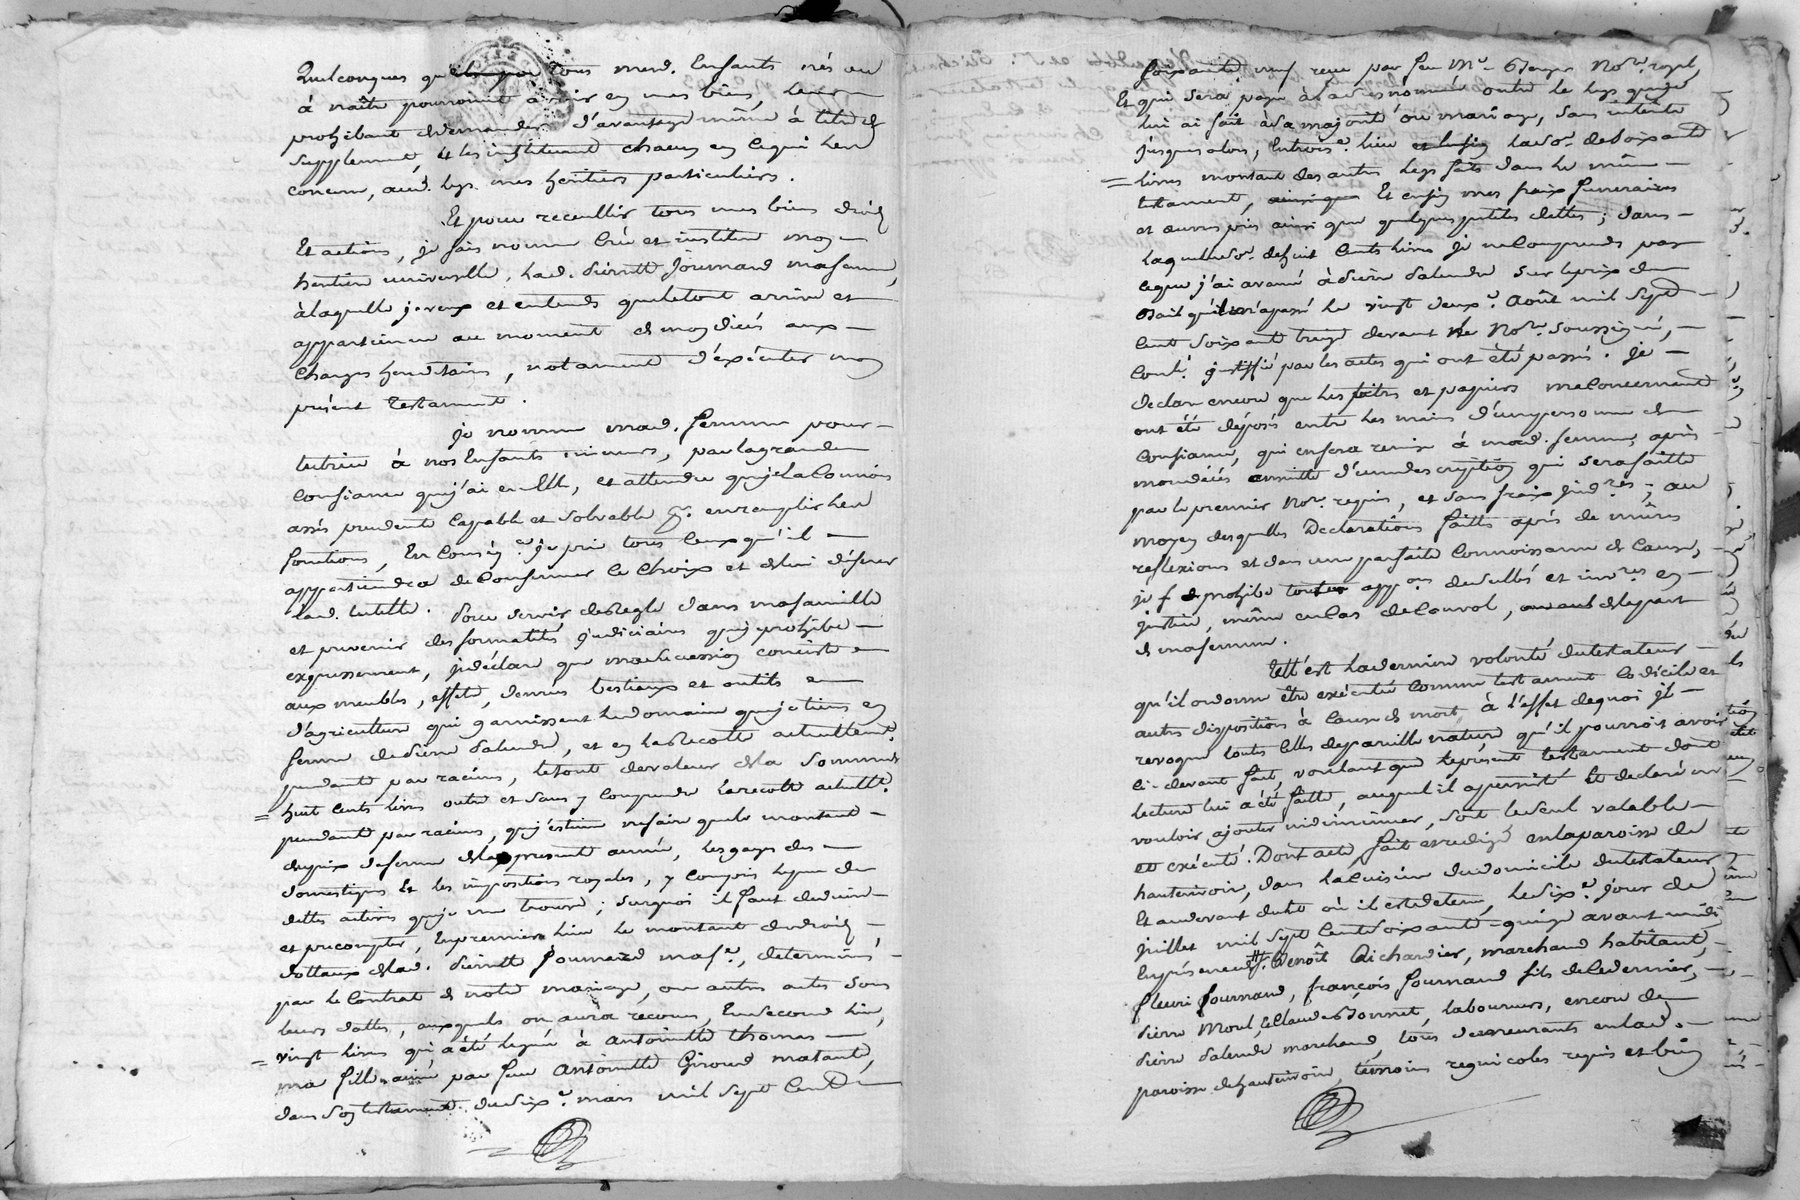 Quelconques que tous mesd. Enfants nés ou
à naître pourroient avoir en mes biens, leur
prohibant de demander d'avantage même à titre de
supplement, & les instituant chacun en ce qui les
concerne, aud. legs mes heritiers particuliers.
Et pour receuillir tous mes biens droits
Et actions, je fais nomme crée et institue mon
heritiere universelle, lad. pierrette fournand ma femme,
à laquelle je veux et entends que le tout arrive et
appartienne au moment de mon décès aux
charges hereditaires, notament d'exécuter mon
présent testament.
je nomme mad. femme pour
tutrice à nos Enfants mineurs, par la grande
confiance que j'ai en Elle, et attendu que je la connois
assés prudente capable et solvable pr. en remplir les
fonctions, En conséq.ce je prie tous ceux qu'il
appartiendra de confirmer ce choix et de lui déferer
lad. tutelle. Pour servir de Regle dans ma famille
et prevenir des formalités judiciaires que je prohibe
expressement, je déclare que ma succession consiste
aux meubles, effets, denrées bestiaux et outils
d'agriculture qui garnissent le domaine que je tiens en
ferme de pierre dalendre, et en la Recolte actuellemt.
pendante par racines, le tout de valeur de la somme de
= huit cents livres outre et sans y comprendre la recolte actuelle.
pendante par racines, que j'estime ne faire que le montant
du prix de ferme de la presente année, les gages des
domestiques Et les impositions royales, y compris le peu de
dettes actives que je me trouve; surquoi il faut deduire
et precompter, En premier lieu le montant des droits
dottaux de lad. pierrette fournand ma fe., determinés
par le Contrat de notre mariage, ou autres actes sous
leurs dattes, auxquels on aura recours, En second lieu,
= vingt livres qui a été leguée à antoinette thomas
ma fille ainée par feue antoinette Giroud ma tante,
dans son testament du dix e. mars mil sept Cent
soixante neuf reçu par feu Me. Berger Nore. royal,
Et qui sera payée à lad. susnommée outre le legs que je
lui ai fait à sa majorité ou mariage, sans intérêts
jusques alors, En trois e. lieu la so. de soixante
= livres montant des autres legs faits dans le même
testament, Et enfin mes fraix funeraires
et œuvres pies ainsi que quelques petites dettes; dans
laquelle so. de huit cents livres je ne comprends pas
ce que j'ai avancé à pierre dalendre sur le prix du
Bail qu'il m'a passé le vingt deux e. Août mil sept
Cent soixante treize devant Me Nore. soussigné,
comé. justifié par les actes qui ont été passés. je
declare encore que les titres et papiers me concernants
ont été déposés entre les mains d'une personne de
confiance, qui en fera remise à mad. femme, après
mon décès ensuitte d'une description qui sera faitte
par le premier Nore. requis, et sans fraix judres.; au
moyen desquelles Declarations faittes après de mûres
reflexions et dans une parfaite Connoissance de cause,
je prohibe toutes appons. de scellés et invres. en
justice, même en cas de Convol, de la part
de ma femme.
Telle est la derniere volonté du testateur
qu'il ordonne être exécutée comme testament codicile et
autre disposition à cause de mort, à l'effet de quoi il
revoque toutes celles de pareille nature qu'il pourroit avoir
ci-devant fait, voulant que le présent testament dont
lecture lui a été faitte, auquel il a persisté Et declaré ne
vouloir ajouter ni diminuer, soit le seul valable
et exécuté. Dont acte, fait et redigé en la paroisse de
hauterivoire, dans la cuisine du domicile du testateur
Et au devant du lit où il est detenu, le dix e. jour de
Juillet mil sept cent soixante-quinze avant midi
En présence de Sr. Benoît Richardier, marchand habitant,
fleuri fournand, françois fournand fils de ce dernier,
pierre Moul, Claude Bonnet, laboureurs, encore de
pierre dalendre marchand tous demeurants en lad.
paroisse de hauterivoire, témoins regnicoles requis et bien